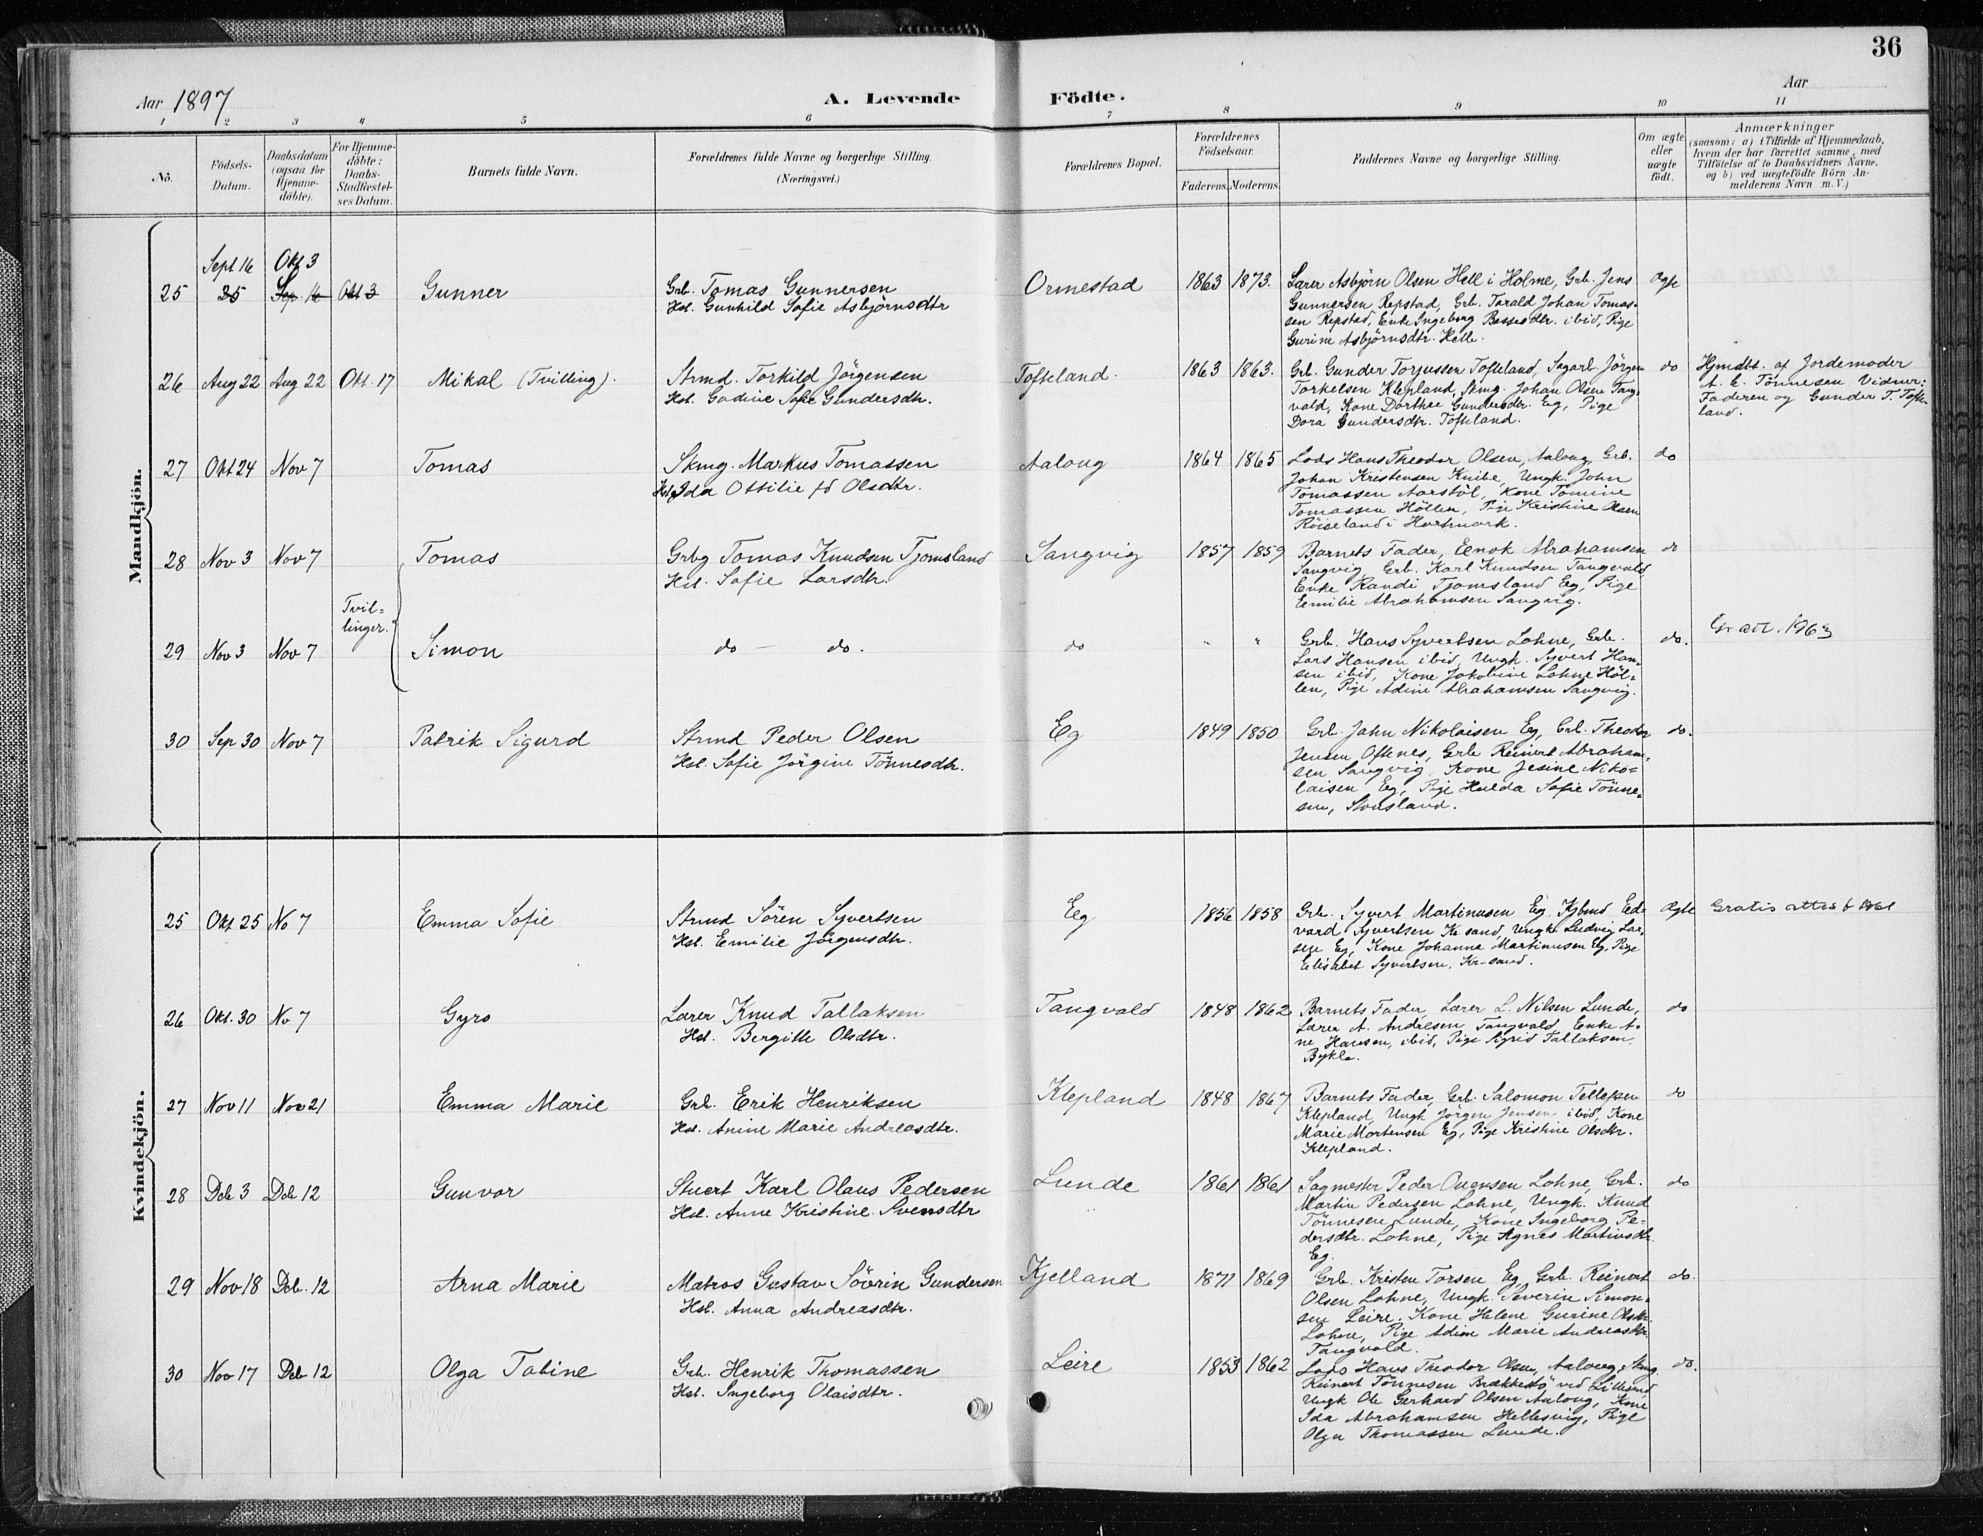 36
Aar 1897
A. Levende Födte.
Aar
1 2 3 4 5 6 7 8 9 10 11
No.
Födsels-
Datum.
Daabsdatum
(ogsaa for
Hjemme-
döbte).
For Hjemme-
döbte:
Daabs-
Stadfæstel-
ses Datum.
Barnets fulde Navn.
Forældrenes fulde Navne og borgerlige Stilling.
(Næringsvei.)
Forældrenes Bopæl.
Forældrenes
Födselsaar.
Faderens. Moderens.
Faddernes Navne og borgerlige Stilling.
Om ægte
eller
uægte
födt.
Anmærkninger
(saasom: a) i Tilfælde af Hjemmedaab,
hvem der har forrettet samme, med
Tilföielse af to Daabsvidners Navne,
og b) ved uægtefödte Börn An-
melderens Navn m. V.)
Mandkjön.
Sept 16 Okt 3
25 25 Sep 16 Okt 3 Gunner
Grb. Tomas Gunnersen
Hst. Gunhild Sofie Asbjörnsdtr
Ormestad 1863 1873.
Lærer Asbjörn Olsen Hell i Holme, Grb. Jens
Gunnersen Repstad, Grb. Tarald Johan Tomas-
sen Repstad, Enke Ingeborg Bessesdtr. ibid, Pige
Gurine Asbjörnsdtr. Helle.
Ægte
26 Aug 22 Aug 22 Okt. 17 Mikal (Tvilling).
Strmd. Torkild Jörgensen
Hst. Godine Sofie Gundersdtr.
Tofteland. 1863 1863.
Grb. Gunder Torjussen Tofteland, Sagarb. Jörgen
Torkelsen Klepland, Skmg. Johan Olsen Tang-
vald, Kone Dorthee Gundersdtr. Eg, Pige
Dora Gundersdtr. Tofteland.
do
Hjmdbt. af Jordemoder
A. E. Tönnesen Vidner:
Faderen og Gunder T. Tofte-
land.
27 Okt 24 Nov 7 Tomas
Skmg. Markus Tomassen
Hst. Ida Ottilie fd Olsdtr.
Aalong 1864 1865
Lods Hans Theodor Olsen, Aalong, Grb.
Johan Kristensen Knibe, Ungk. John
Tomassen Aarstöl, Kone Tomine
Tomassen Höllen, Pige Kristine Olsen
Röiseland i Hartmark.
do
28 Nov 3 Nov 7 Tomas
Grbg Tomas Knudsen Tjomsland
Hst. Sofie Larsdtr.
Sangvig 1857 1859
Barnets Fader, Eenok Abrahamsen
Sangvig Grb. Karl Knudsen Tangvald
Enke Randi Tjomsland Eg, Pige
Eemilie Abrahamsen Sangvig.
do
Tvil-
linger.
29 Nov 3 Nov 7 Simon
do - do.
do " "
Grb. Hans Syvertsen Lohne, Grb.
Lars Hansen ibid, Ungk. Syvert Han-
sen ibid, Kone Jakobine Lohne Höl-
len, Pige Adine Abrahamsen Sangvig.
do.
Gr att. 1963
30 Sep 30 Nov 7 Patrik Sigurd
Strmd Peder Olsen
Hst. Sofie Jörgine Tönnesdtr.
Eg 1849 1850
Grb. Jahn Nikolaisen Eg, Grb. Theodor
Jensen Oftenes, Grb Reinert Abraham-
sen Sangvig, Kone Jesine Niko-
laisen Eg, Pige Hulda Sofie Tönne-
sen, Stousland.
do.
Kvindekjön.
25 Okt 25 No 7 Emma Sofie
Strmd Sören Syvertsen
Hst. Emilie Jörgensdtr.
Eg 1856 1858
Grb. Syvert Martinusen Eg, Kjbmd Ed-
vard Syvertsen Kr.sand, Ungk. Ludvig Lar-
sen Eg, Kone Johanne Martinusen Eg, Pige
Elisabet Syvertsen, Kr-sand.
Ægte
Gratis attest
26 Okt. 30 No 7 Gyro
Lærer Knud Tallaksen
Hst. Bergitte Olsdtr.
Tangvald 1848 1862
Barnets Fader, Lærer L. Nilsen Lunde,
Lærer A. Andresen Tangvald, Enke A-
ne Hansen, ibid, Pige Sigrid Tallaksen.
Bykle.
do
27 Nov 11 Nov 21 Emma Marie
Grb. Erik Henriksen
Hst. Anine Marie Andreasdtr.
Klepland 1848 1867
Barnets Fader, Grb. Salomon Tellefsen
Klepland, Ungk Jörgen Jensen ibid, Kone
Marie Mortensen Eg, Pige Kristine Olsdtr.
Klepland.
do
28 Deb 3 Deb 12 Gunvor
Stuert Karl Olaus Pedersen
Hst. Anne Kristine Svensdtr
Lunde 1861 1861
Sagmester Peder Ouensen Lohne, Grb.
Martin Pedersen Lohne, Ungk. Knud
Tönnesen Lunde, Kone Ingeborg Pe-
dersdtr. Lohne, Pige Agnes Martinsdtr.
Eg.
do
29 Nov 18 Deb. 12 Arna Marie
Matros Gustav Sövrin Gundersen
Hst. Anna Andreasdtr.
Kjelland 1871 1869
Grb. Kristen Torsen Eg, Grb. Reinert
Olsen Lohne, Ungk. Severin Simon-
sen Leire, Kone Helene Gurine Olsdtr.
Lohne, Pige Adine Marie Andreasdtr.
Tangvald.
do.
30 Nov 17 Deb 12 Olga Tobine
Grb. Henrik Thomassen
Hst. Ingeborg Olaisdtr.
Leire 1853 1862
Lods Hans Theodor Olsen, Aalong, Skmg.
Reinert Tönnesen Brækkestö ved Lillesand
Ungk Ole Gerhard Olsen Aalong, Kone
Ida Abrahamsen Hellesvig, Pige
Olga Thomassen Lunde.
do.